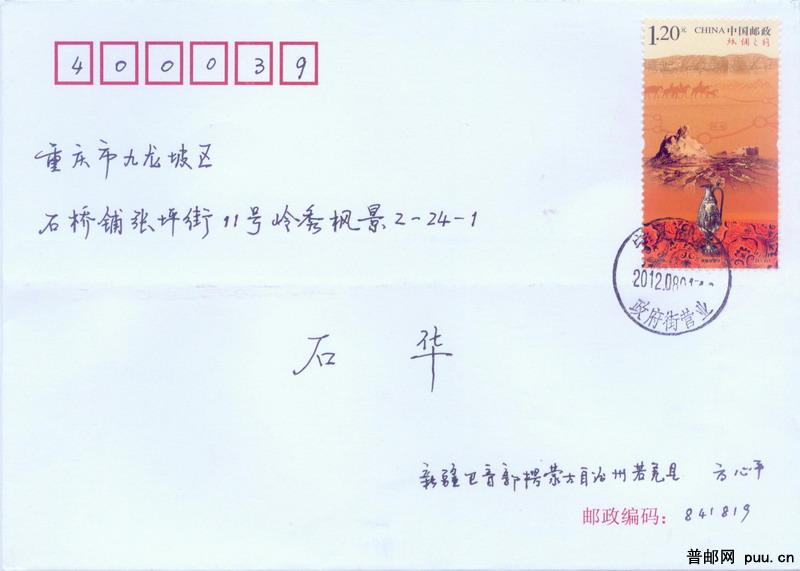 1.20元 CHINA 中国邮政
丝绸之路
400039
重庆市九龙坡区
石桥铺张坪街11号岭秀枫景2-24-1
2012.08
政府街营业
石 华
新疆巴音郭楞蒙古自治州若羌县 方心平
邮政编码: 841819
普邮网 puu.cn